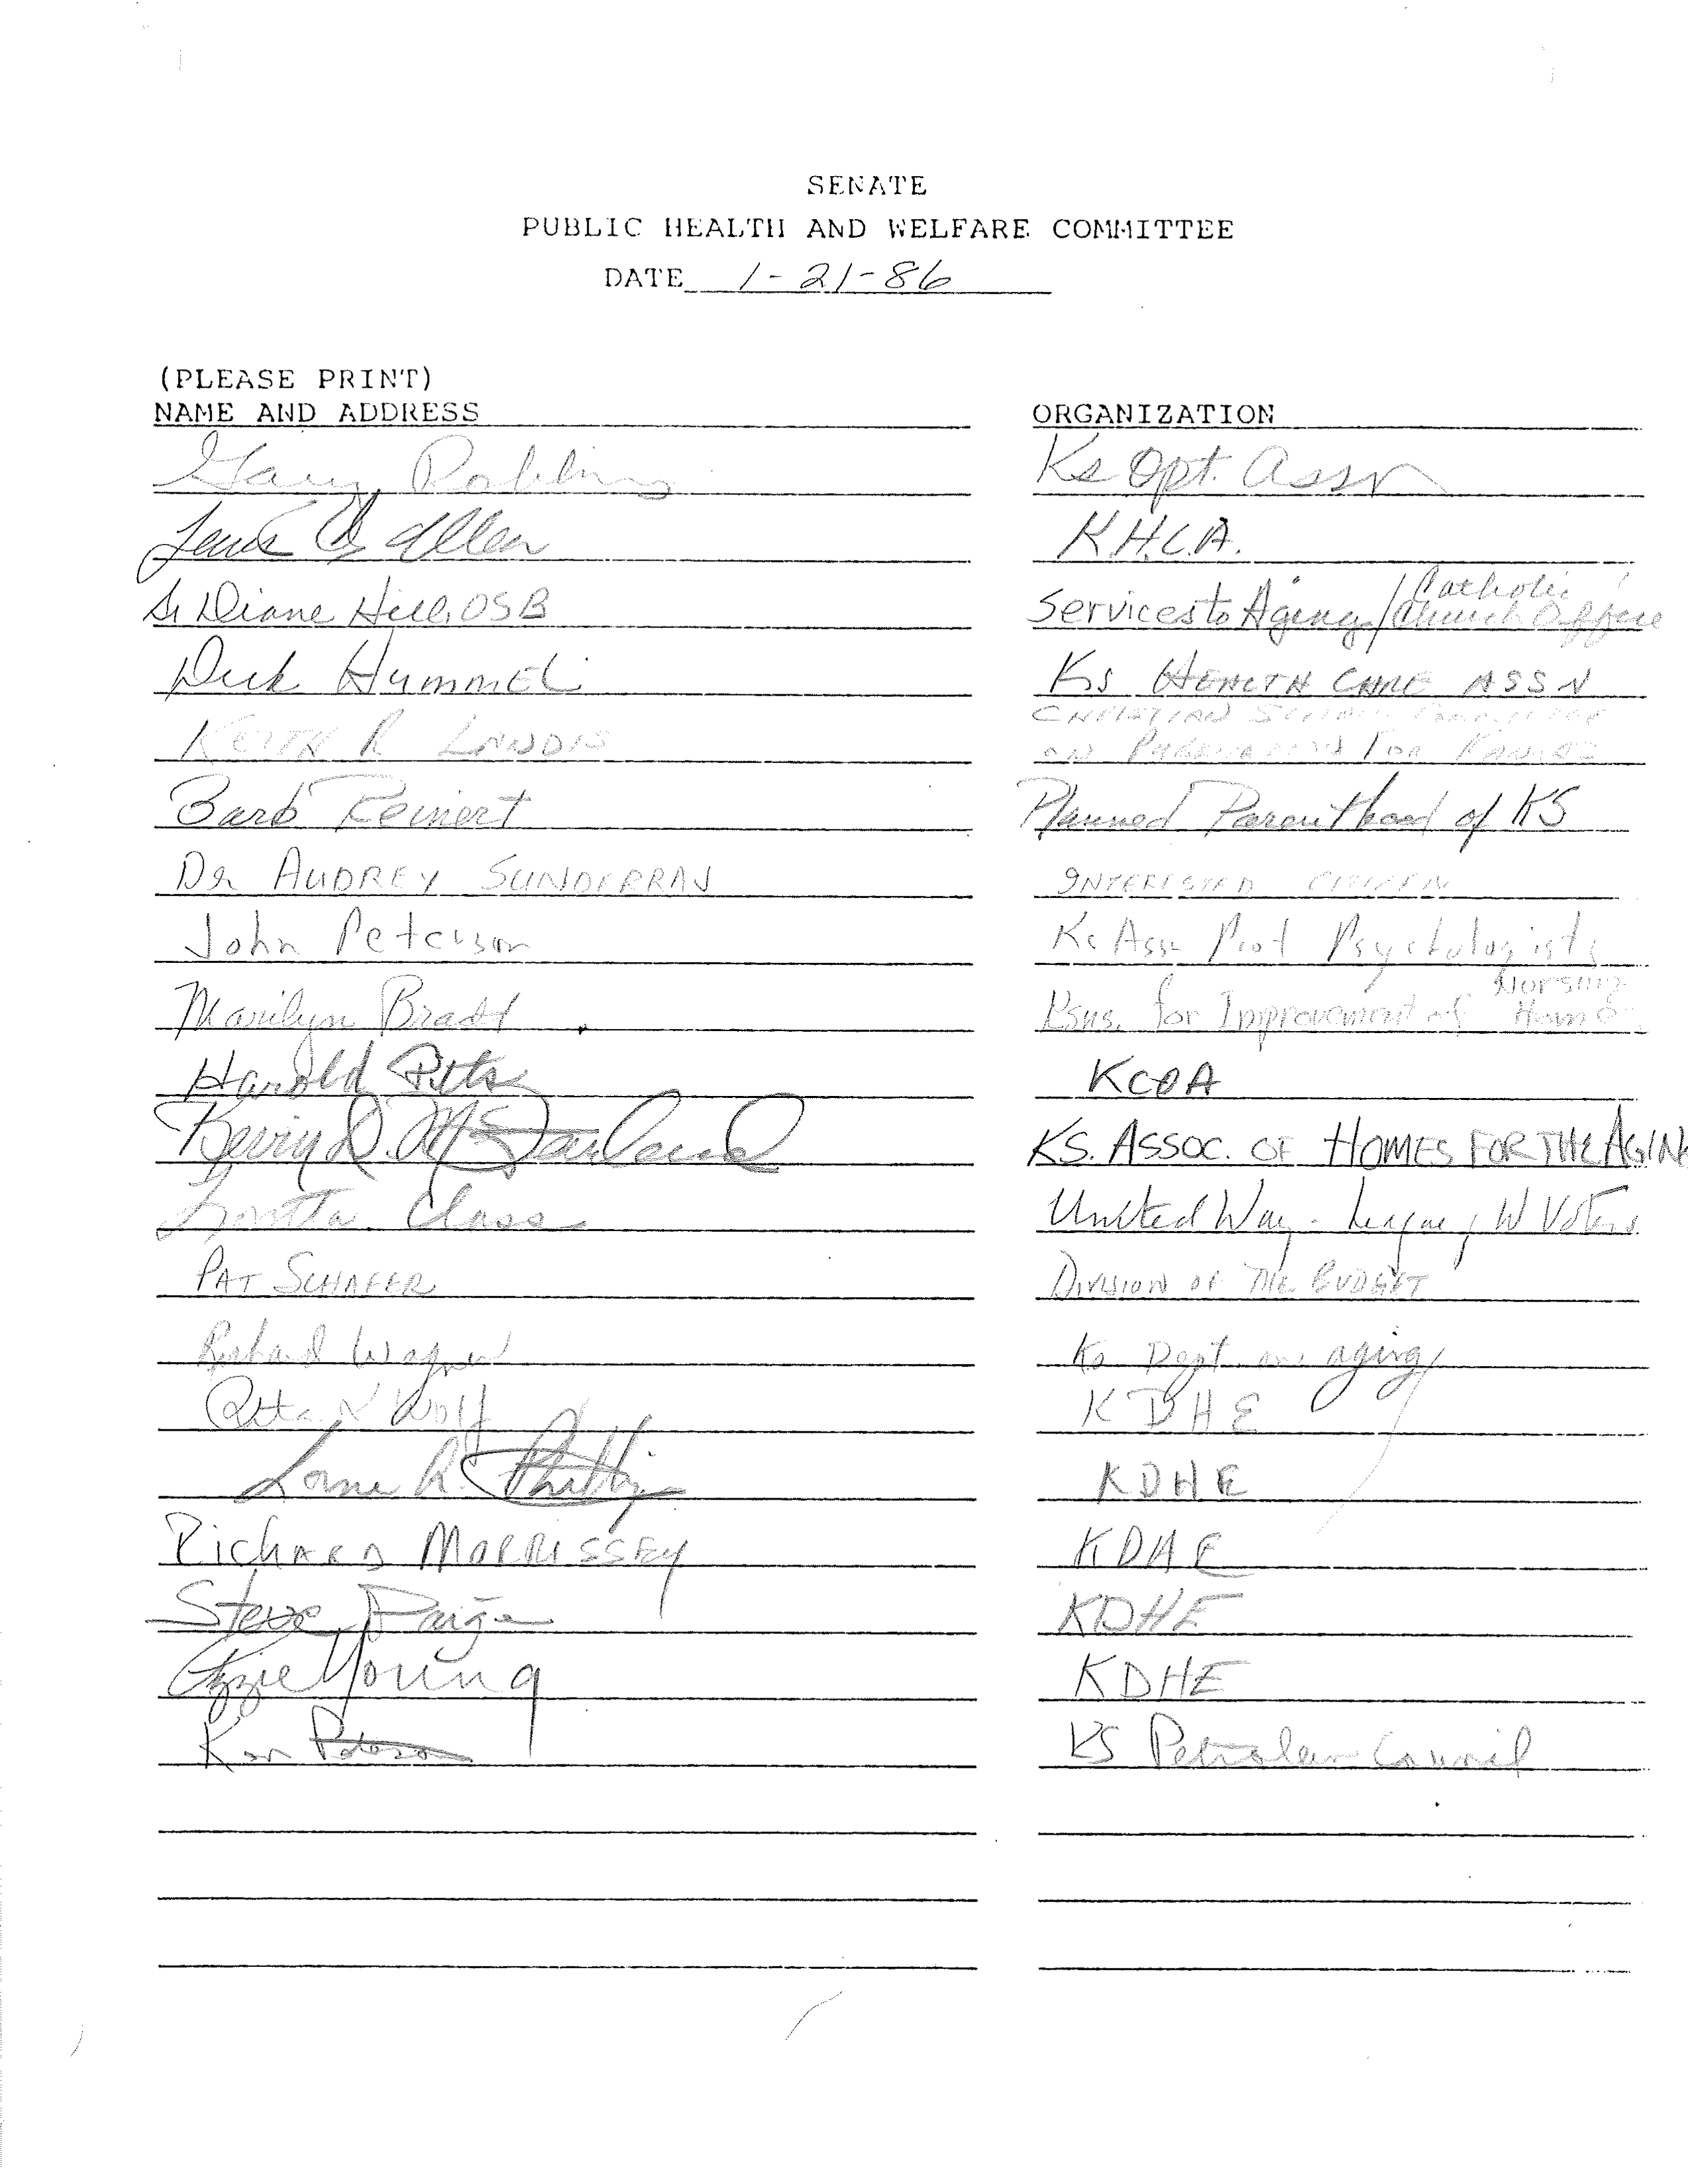 SENATE
PUBLIC HEALTH AND WELFARE COMMITTEE
DATE 1-21-86
(PLEASE PRINT)
NAME AND ADDRESS ORGANIZATION
Gary Robbins Ks Opt. Assn
Allen K.H.C.A.
Sr Diane Hill, OSB Services to Aging / Catholic Church Office
Dick Hummel Ks HEALTH CARE ASSN
KEITH R LANDIS CHRISTIAN SCIENCE COMMITTEE
ON PUBLICATION FOR KANSAS
Barb Reinert Planned Parenthood of KS
Dr AUDREY SUNDERRAJ INTERESTED CITIZEN
John Peterson Ks Assn Prof Psychologists
Marilyn Bradt Ksns. for Improvement of Nursing Homes
Harold Pitts KCOA
D. KS. ASSOC. OF HOMES FOR THE AGING
Class United Way - League W Voters
PAT SCHAFER DIVISION OF THE BUDGET
Richard Wagner Ks Dept on aging
Rita Wolf KDHE
Lorne A. Phillips KDHE
RICHARD MORRISSEY KDHE
Steve Paige KDHE
Young KDHE
Ken Peterson KS Petroleum Council